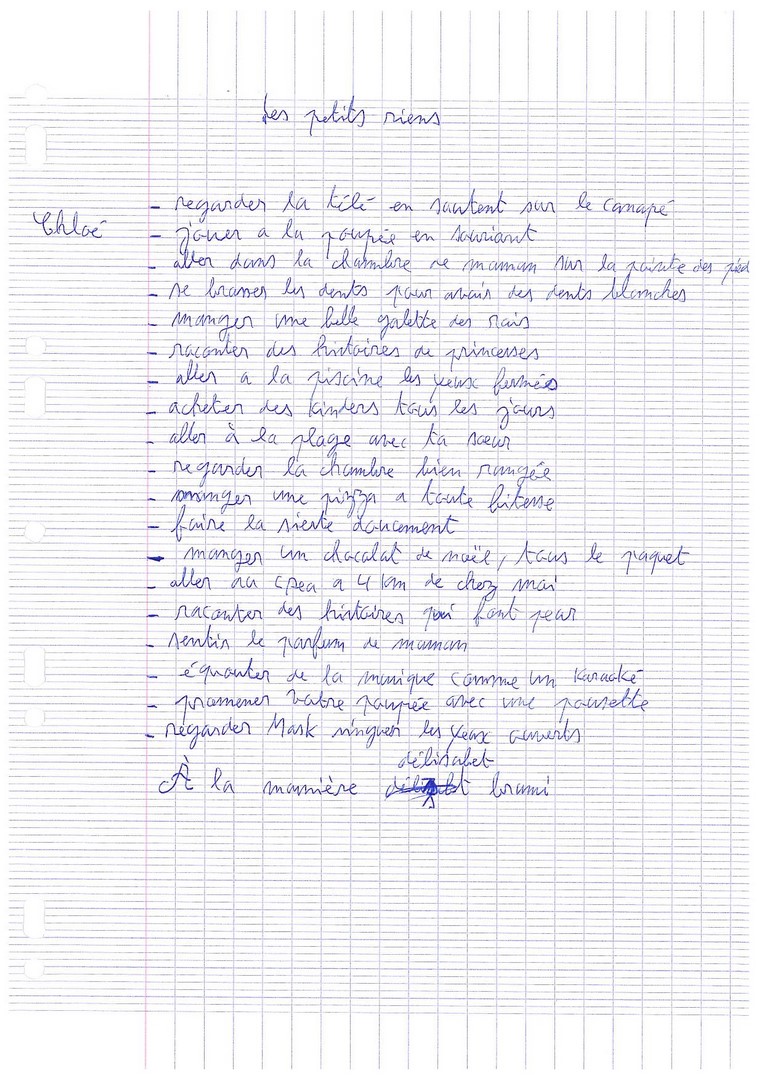 Les petits riens
Chloé
- regarder la télé en sautent sur le canapé
- jouer a la poupée en souriant
- aller dans la chambre de maman sur la pointe des pied
- se brosser les dents pour avoir des dents blanches
- manger une belle galette des rois
- raconter des histoires de princesses
- aller a la piscine les yeux fermés
- acheter des kinders tous les jours
- aller à la plage avec ta sœur
- regarder la chambre bien rangée
- manger une pizza a toute bitesse
- faire la sieste doucement
- manger un chocolat de noël, tous le paquet
- aller au cpea a 4 km de chez moi
- raconter des histoires qui font peur
- sentir le parfum de maman
- équouter de la musique comme un karaoké
- promener votre poupée avec une pousette
- regarder Mask singuer les yeux ouverts
délisabet
À la manière brami